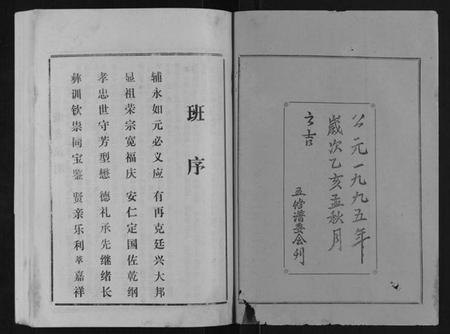 公元一九九五年
岁次乙亥孟秋月
之吉
五修谱委会刊
班序
辅永如元必义应 有再克廷兴大邦
显祖荣宗宽福庆 安仁定国佐乾纲
孝忠世守芳型懋 德礼承先继绪长
彝训钦崇同宝鉴 贤亲乐利萃嘉祥